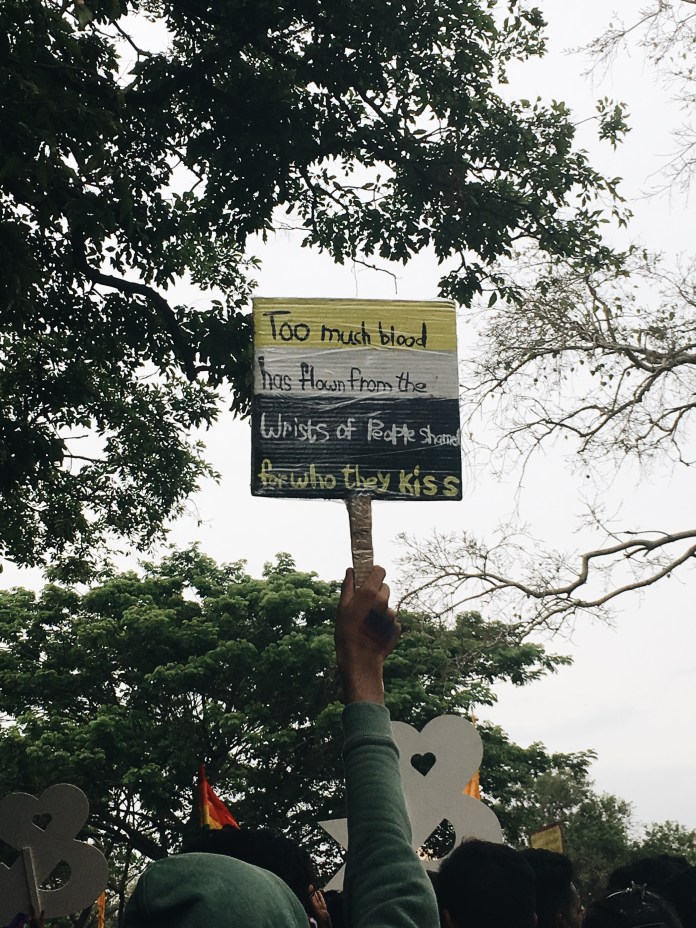 Too much blood
has flown from the
Wrists of People shamed
for who they kiss